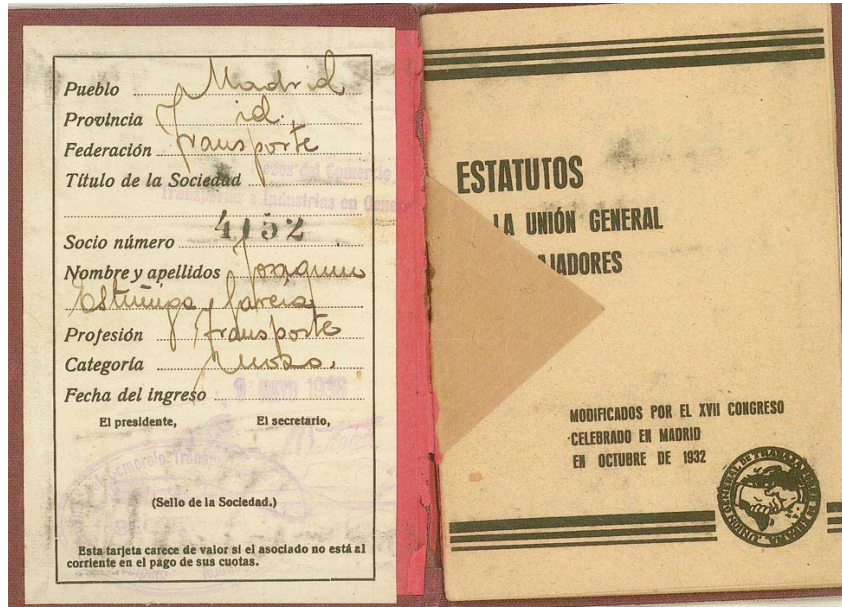 Pueblo Madrid
Provincia id.
Federación Transporte
Título de la Sociedad
del Comercio
Transportes e Industrias en
Socio número 4152
Nombre y apellidos Joaquin
García
Profesión Transporte
Categoría Mozo.
Fecha del ingreso MAYO 1936
El presidente, El secretario,
(Sello de la Sociedad.)
Esta tarjeta carece de valor si el asociado no está al
corriente en el pago de sus cuotas.
ESTATUTOS
LA UNIÓN GENERAL
AJADORES
MODIFICADOS POR EL XVII CONGRESO
CELEBRADO EN MADRID
EN OCTUBRE DE 1932
UNION GENERAL DE TRABAJADORES DE ESPAÑA